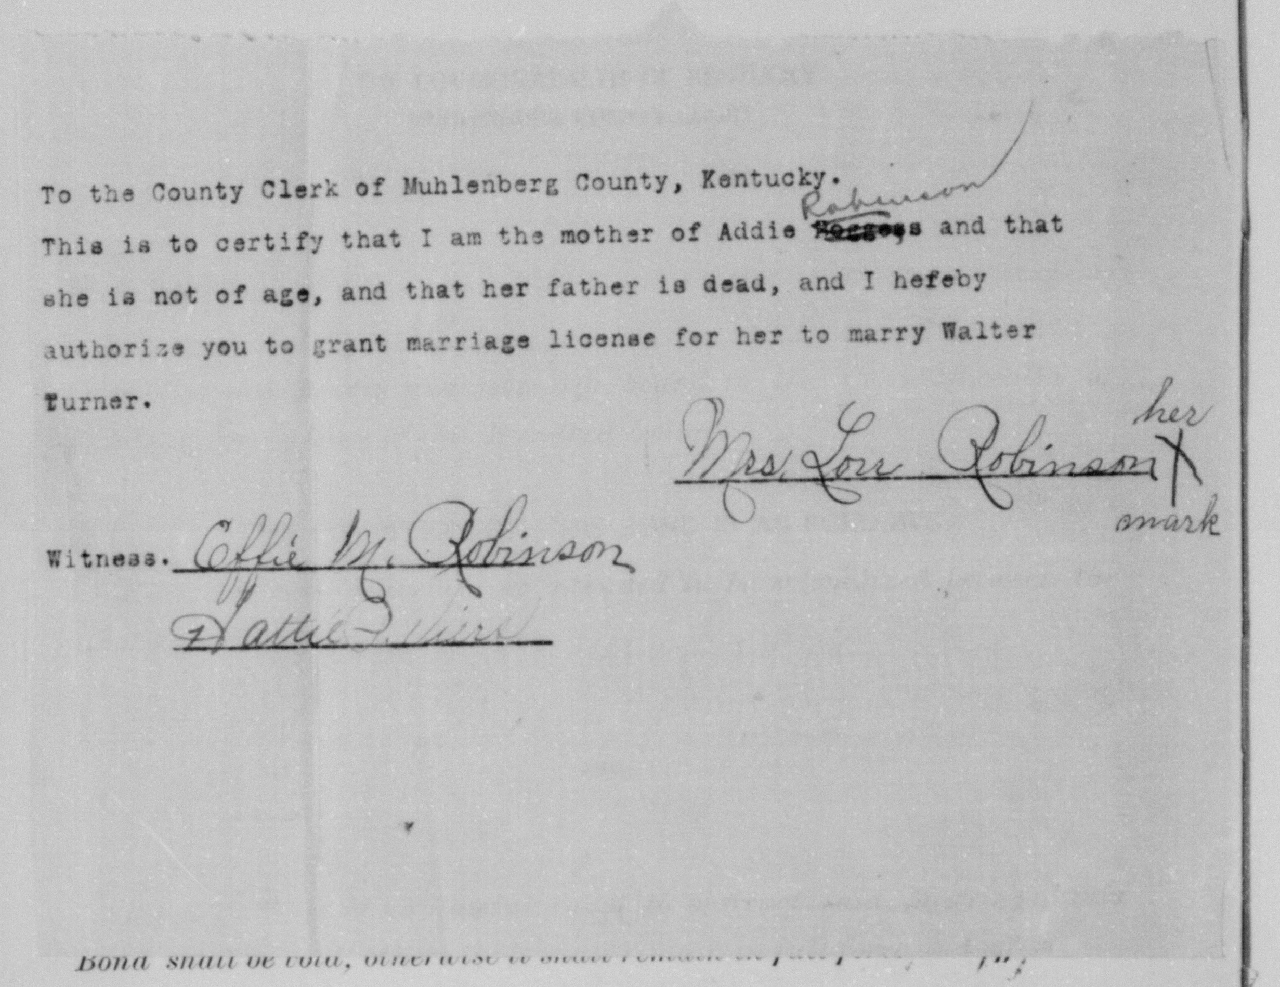 To the County Clerk of Muhlenberg County, Kentucky.
Robinson
This is to certify that I am the mother of Addie Boggess and that
she is not of age, and that her father is dead, and I hereby
authorize you to grant marriage license for her to marry Walter
Turner.
her
Mrs. Lou Robinson X
mark
Witness. Effie M. Robinson
Hattie
Bond shall be void, otherwise